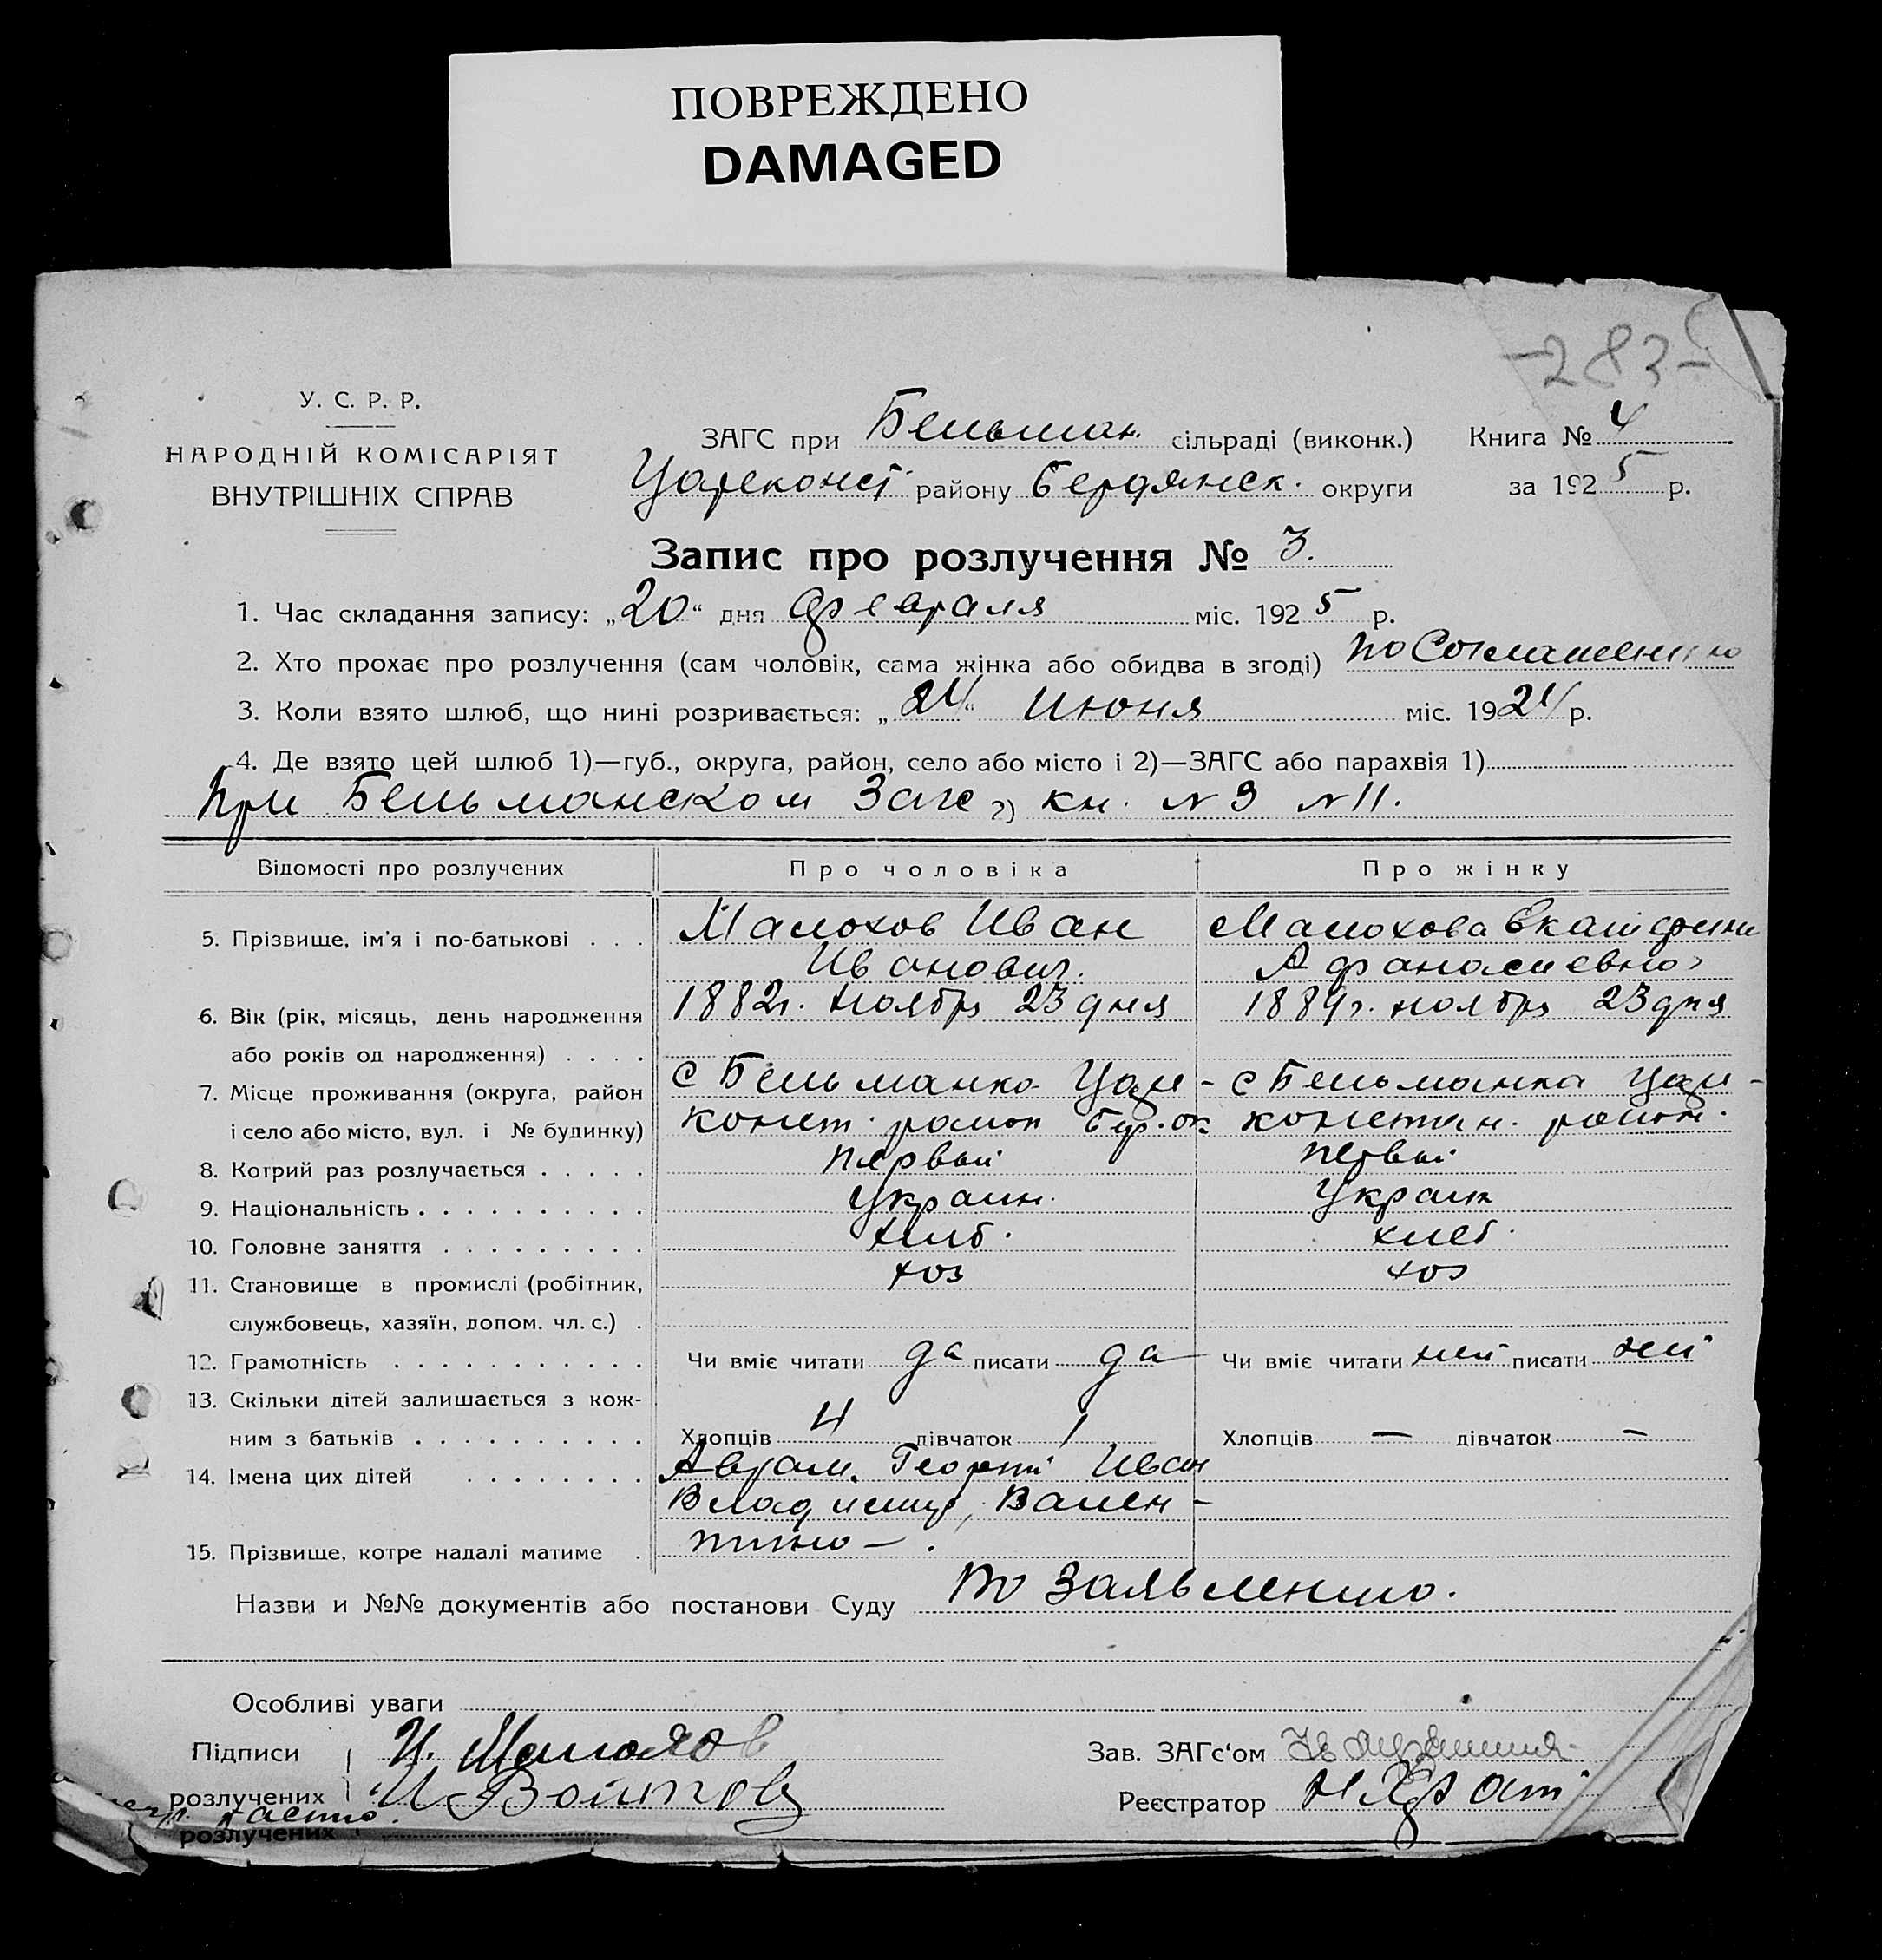 ПОВРЕЖДЕНО
DAMAGED
-283-
У. С. Р. Р.
НАРОДНІЙ КОМІСАРІЯТ
ВНУТРІШНІХ СПРАВ
ЗАГС при Бельман. сільраді (виконк.) Книга № 4
Цареконст. району Бердянск. округи за 1925 р.
Запис про розлучення № 3.
1. Час складання запису: „20“ дня февраля міс. 1925 р.
2. Хто прохає про розлучення (сам чоловік, сама жінка або обидва в згоді) по Соглашению
3. Коли взято шлюб, що нині розривається: „24“ Июня міс. 1924 р.
4. Де взято цей шлюб 1)—губ., округа, район, село або місто і 2)—ЗАГС або парахвія 1)
При Бельманском Загс 2) кн. № 9 № 11.
Відомості про розлучених Про чоловіка Про жінку
5. Прізвище, ім'я і по-батькові . . . Малохов Иван Малохова Екатерина
Иванович. Афанасиевна
6. Вік (рік, місяць, день народження 1882г. ноябрь 23 дня 1884г. ноябрь 23 дня
або років од народження) . . . .
7. Місце проживання (округа, район с Бельманка Царе- с Бельманка Царе-
і село або місто, вул. і № будинку) конст. район Бер. ок констан. район.
8. Котрий раз розлучається . . . . . первый первый
9. Національність . . . . . . . . . . Украин. Украин
10. Головне заняття . . . . . . . . . хлеб. хлеб.
11. Становище в промислі (робітник, хоз хоз
службовець, хазяїн, допом. чл. с.) .
12. Грамотність . . . . . . . . . . . Чи вміє читати да писати да Чи вміє читати нет писати нет
13. Скільки дітей залишається з кож-
ним з батьків . . . . . . . . . . Хлопців 4 дівчаток 1 Хлопців — дівчаток —
14. Імена цих дітей . . . . . . . . Аврам, Георгий Иван
Владимир, Вален-
тина — .
15. Прізвище, котре надалі матиме .
Назви и №№ документів або постанови Суду по Заявлению.
Особливі уваги
Підписи И. Малохов Зав. ЗАГс‘ом
розлучених И Войтов Реєстратор
розлучених